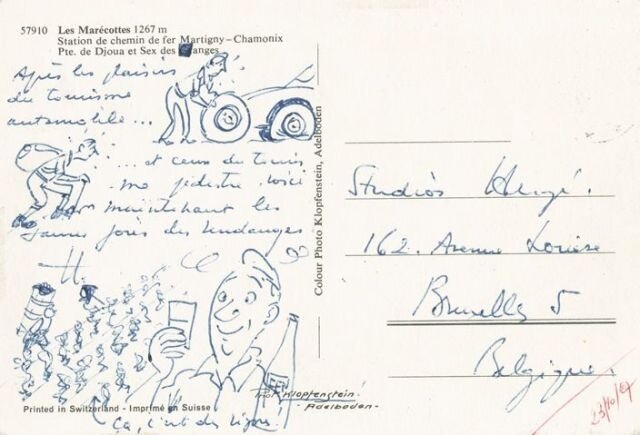 57910 Les Marécottes 1267 m
Station de chemin de fer Martigny – Chamonix
Pte. de Djoua et Sex des Granges
Après les plaisirs
du tourisme
automobile...
... et ceux du touris
me pédestre, voici
maintenant les
joies des vendanges
Colour Photo Klopfenstein, Adelboden
Studios Hergé.
162. Avenue Louise
Bruxelles 5
Belgique.
Phot. Klopfenstein.
Adelboden -
Printed in Switzerland - Imprimé en Suisse
Ça, c'est du
23/10/67